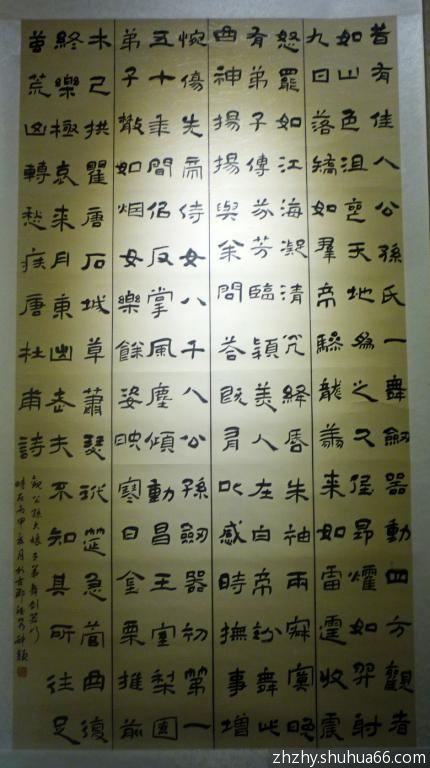 昔有佳人公孫氏一舞劍器動四方觀者
如山色沮喪天地為之久低昂燿如羿射
九日落矯如羣帝驂龍翔來如雷霆收震
怒罷如江海凝清光絳唇朱袖兩寂寞晚
有弟子傳芬芳臨潁美人在白帝妙舞此
曲神揚揚與余問答既有以感時撫事增
惋傷先帝侍女八千人公孫劍器初第一
五十年間似反掌風塵傾動昏王室梨園
弟子散如烟女樂餘姿映寒日金粟堆前
木已拱瞿唐石城草蕭瑟玳筵急管曲復
終樂極哀來月東出老夫不知其所往足
繭荒山轉愁疾唐杜甫詩
觀公孫大娘弟子舞劍器行
時在丙申
zhzhy.shuhua66.com